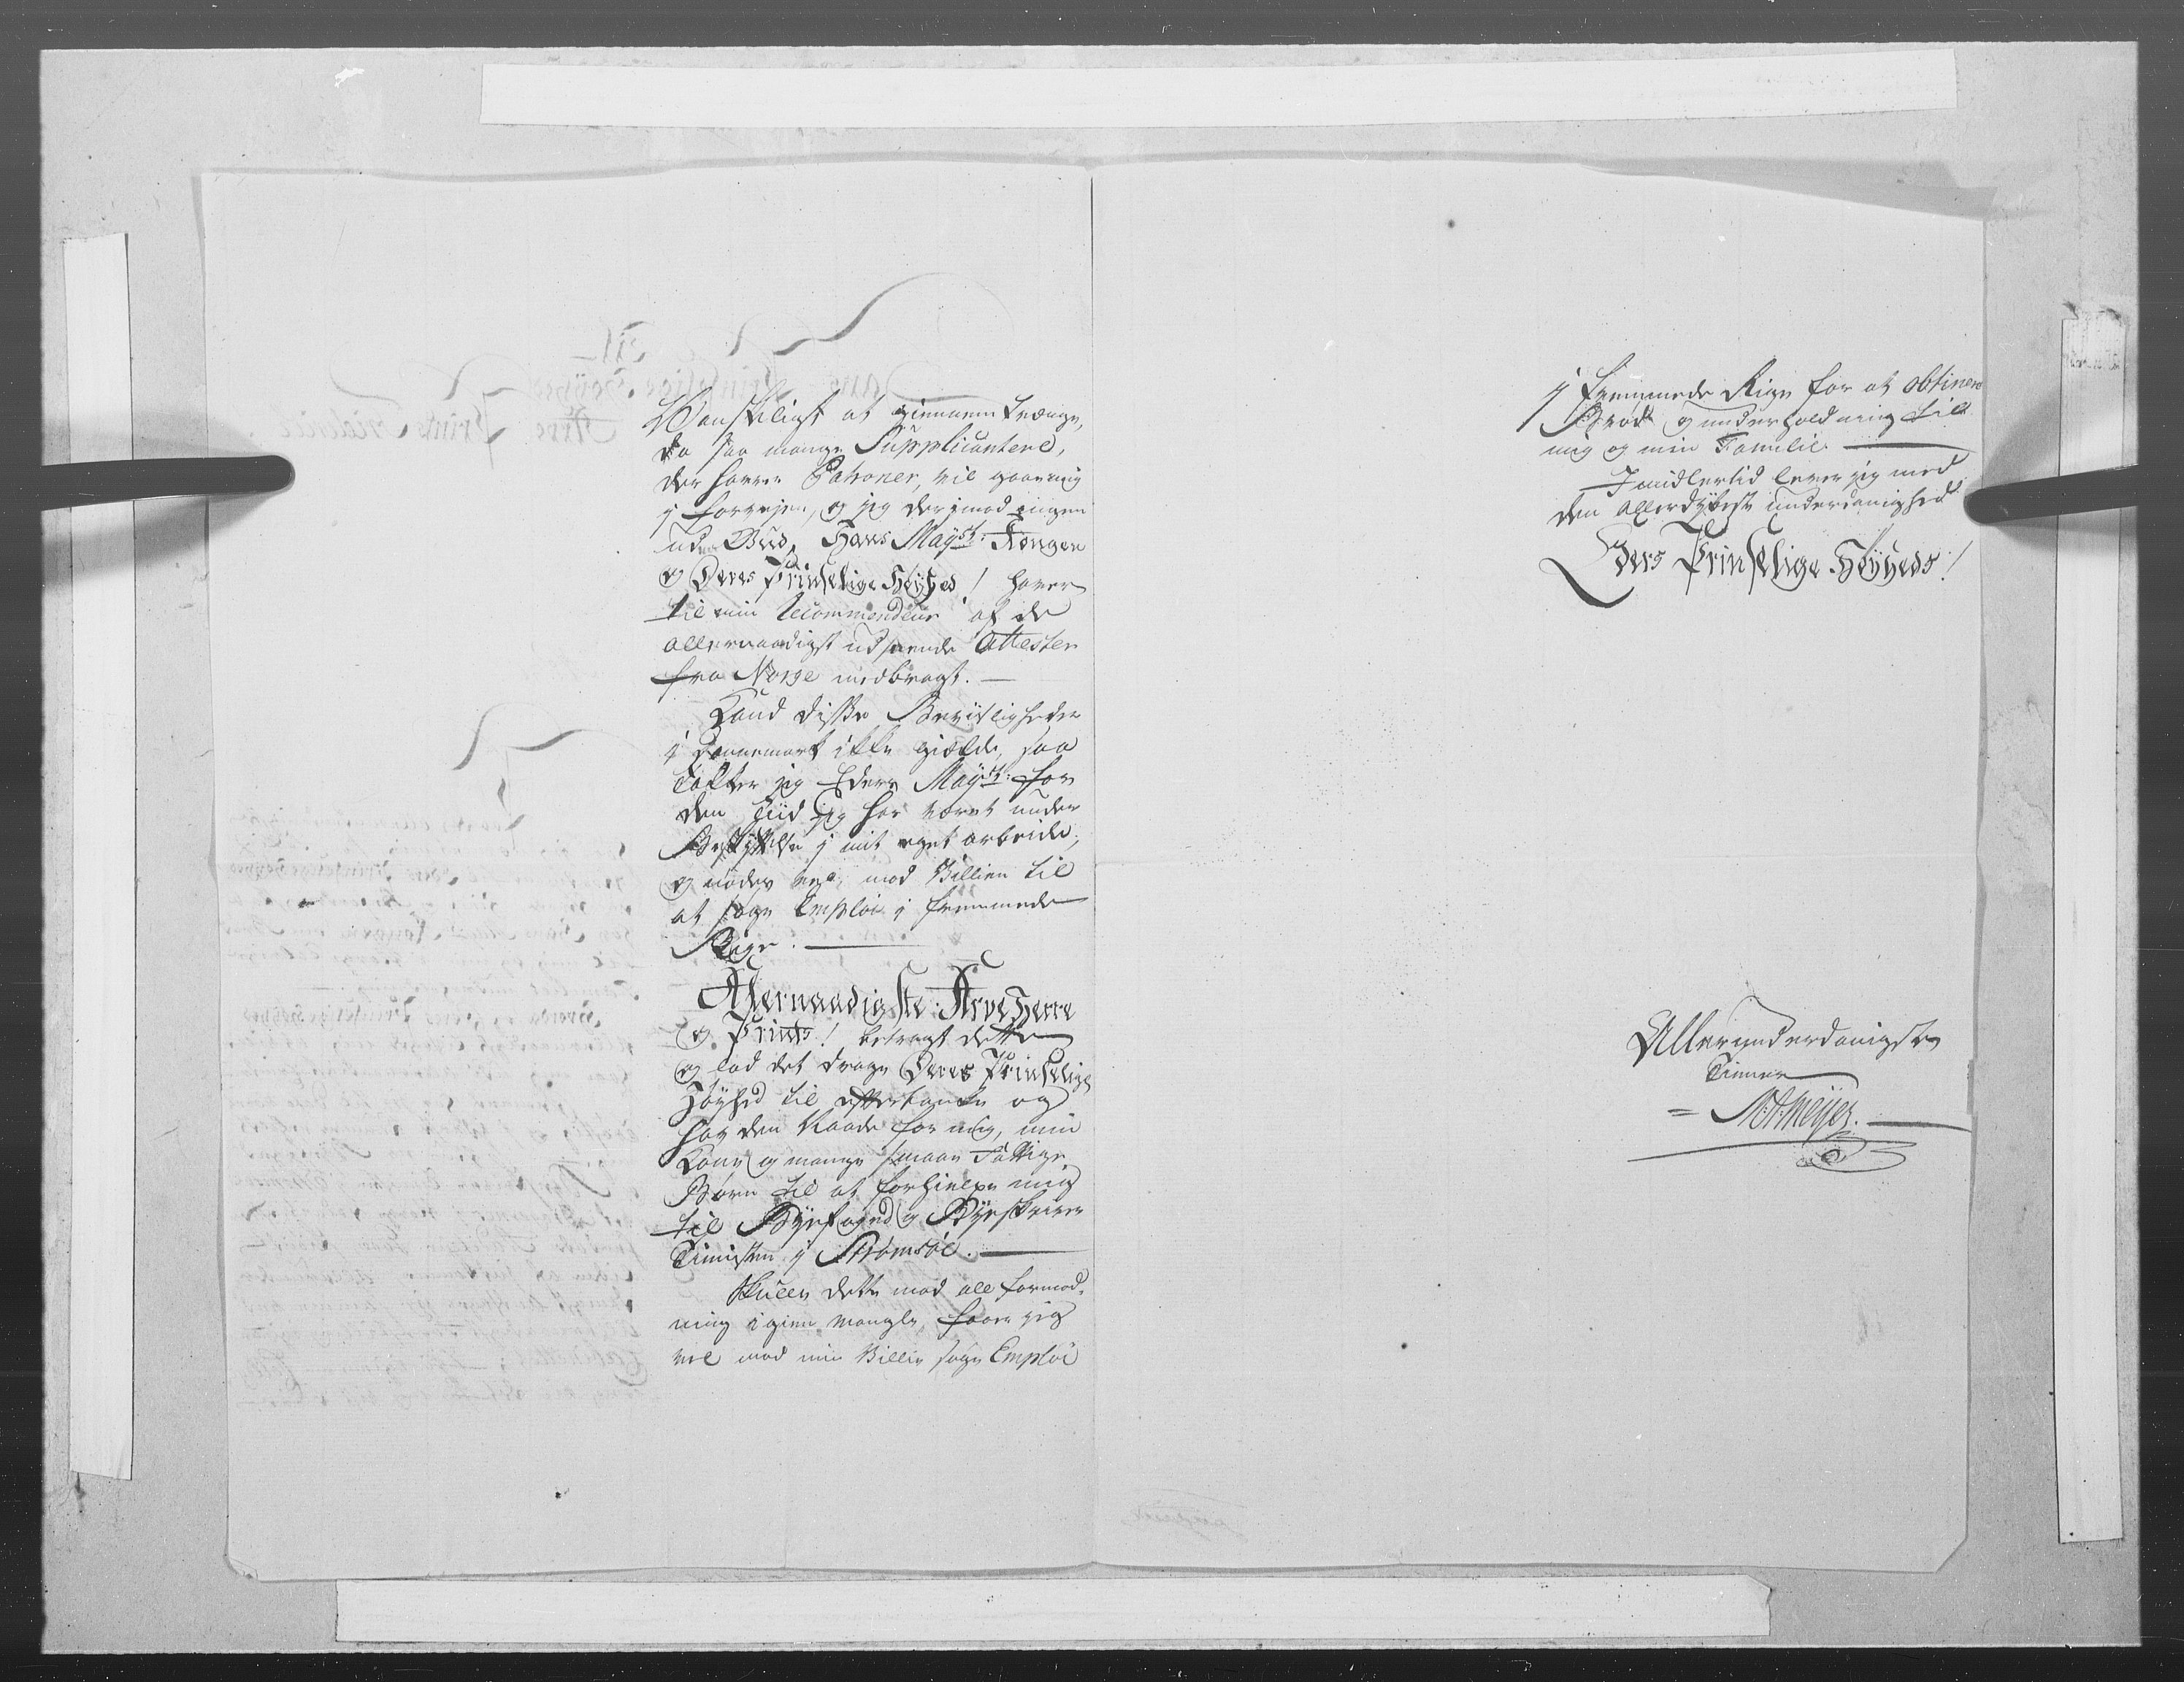 Vanskeligt at giennem trænge,
da saa mange Supplicantere,
der haver Patroner, vil gaae mig
i forvejen, og jeg derimod ingen
uden Gud, Hans Mayst: Kongen
og Deres Prinselige Høyhed! haver
til min Recommendeur af de
allernaadigst udseende Attester
fra Norge medbragt. —
Kand disse Beviisligheder
i Dannemark ikke gielde, saa
takker jeg Eders Mayst: for
den Tiid jeg har været under
Beskyttelse i mit eget arbeide,
og nødes mod Villien til
at søge Emploi i fremmede
Rige. —
Allernaadigste Arve Herre
og Prints! betragt dette
og lad det drage Deres Prinselige
Høyhed til eftertanke og
hav den Naade for mig, min
Kone og mange smaae Fattige
Børn til at forhielpe mig
til Byefoged og Byeskriver
Tienisten i Strømsøe. —
Skulle dette mod all formod-
ning igien mangle, faaer jeg
vel mod min Villie søge Emploi
i fremmede Rige for at obtinere
Brød og underholdning til
mig og min Familie —
Imidlertid lever jeg med
den allerdybeste underdanighed
Deres Prinselige Høyheds!
Allerunderdanigste
Tiener
= Meyer. —